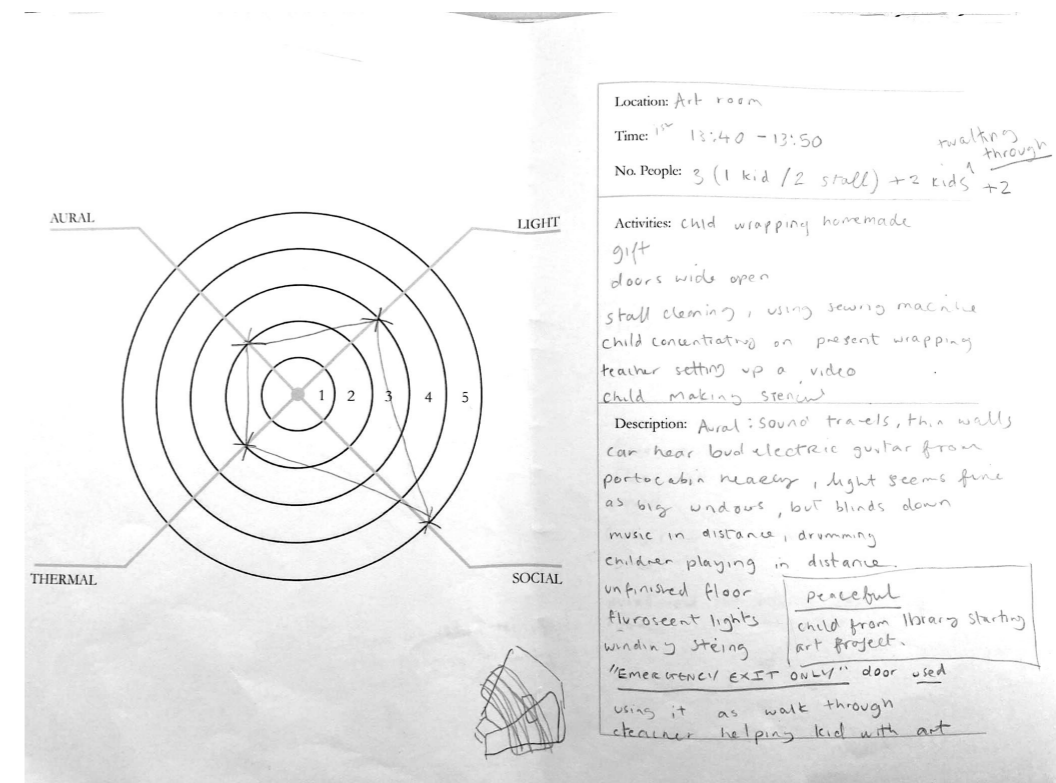 AURAL
LIGHT
1 2 3 4 5
THERMAL
SOCIAL
Location: Art room
Time: 1st 13:40 - 13:50
walking
through
No. People: 3 (1 kid / 2 staff) +2 kids +2
Activities: Child wrapping homemade
gift
doors wide open
staff cleaning, using sewing machine
child concentrating on present wrapping
teacher setting up a video
child making stencil
Description: Aural: sound travels, thin walls
can hear loud electric guitar from
portocabin nearby, light seems fine
as big windows, but blinds down
music in distance, drumming
children playing in distance.
unfinished floor
fluroscent lights
winding
peaceful
child from library starting
art project.
"EMERGENCY EXIT ONLY" door used
using it as walk through
teacher helping kid with art